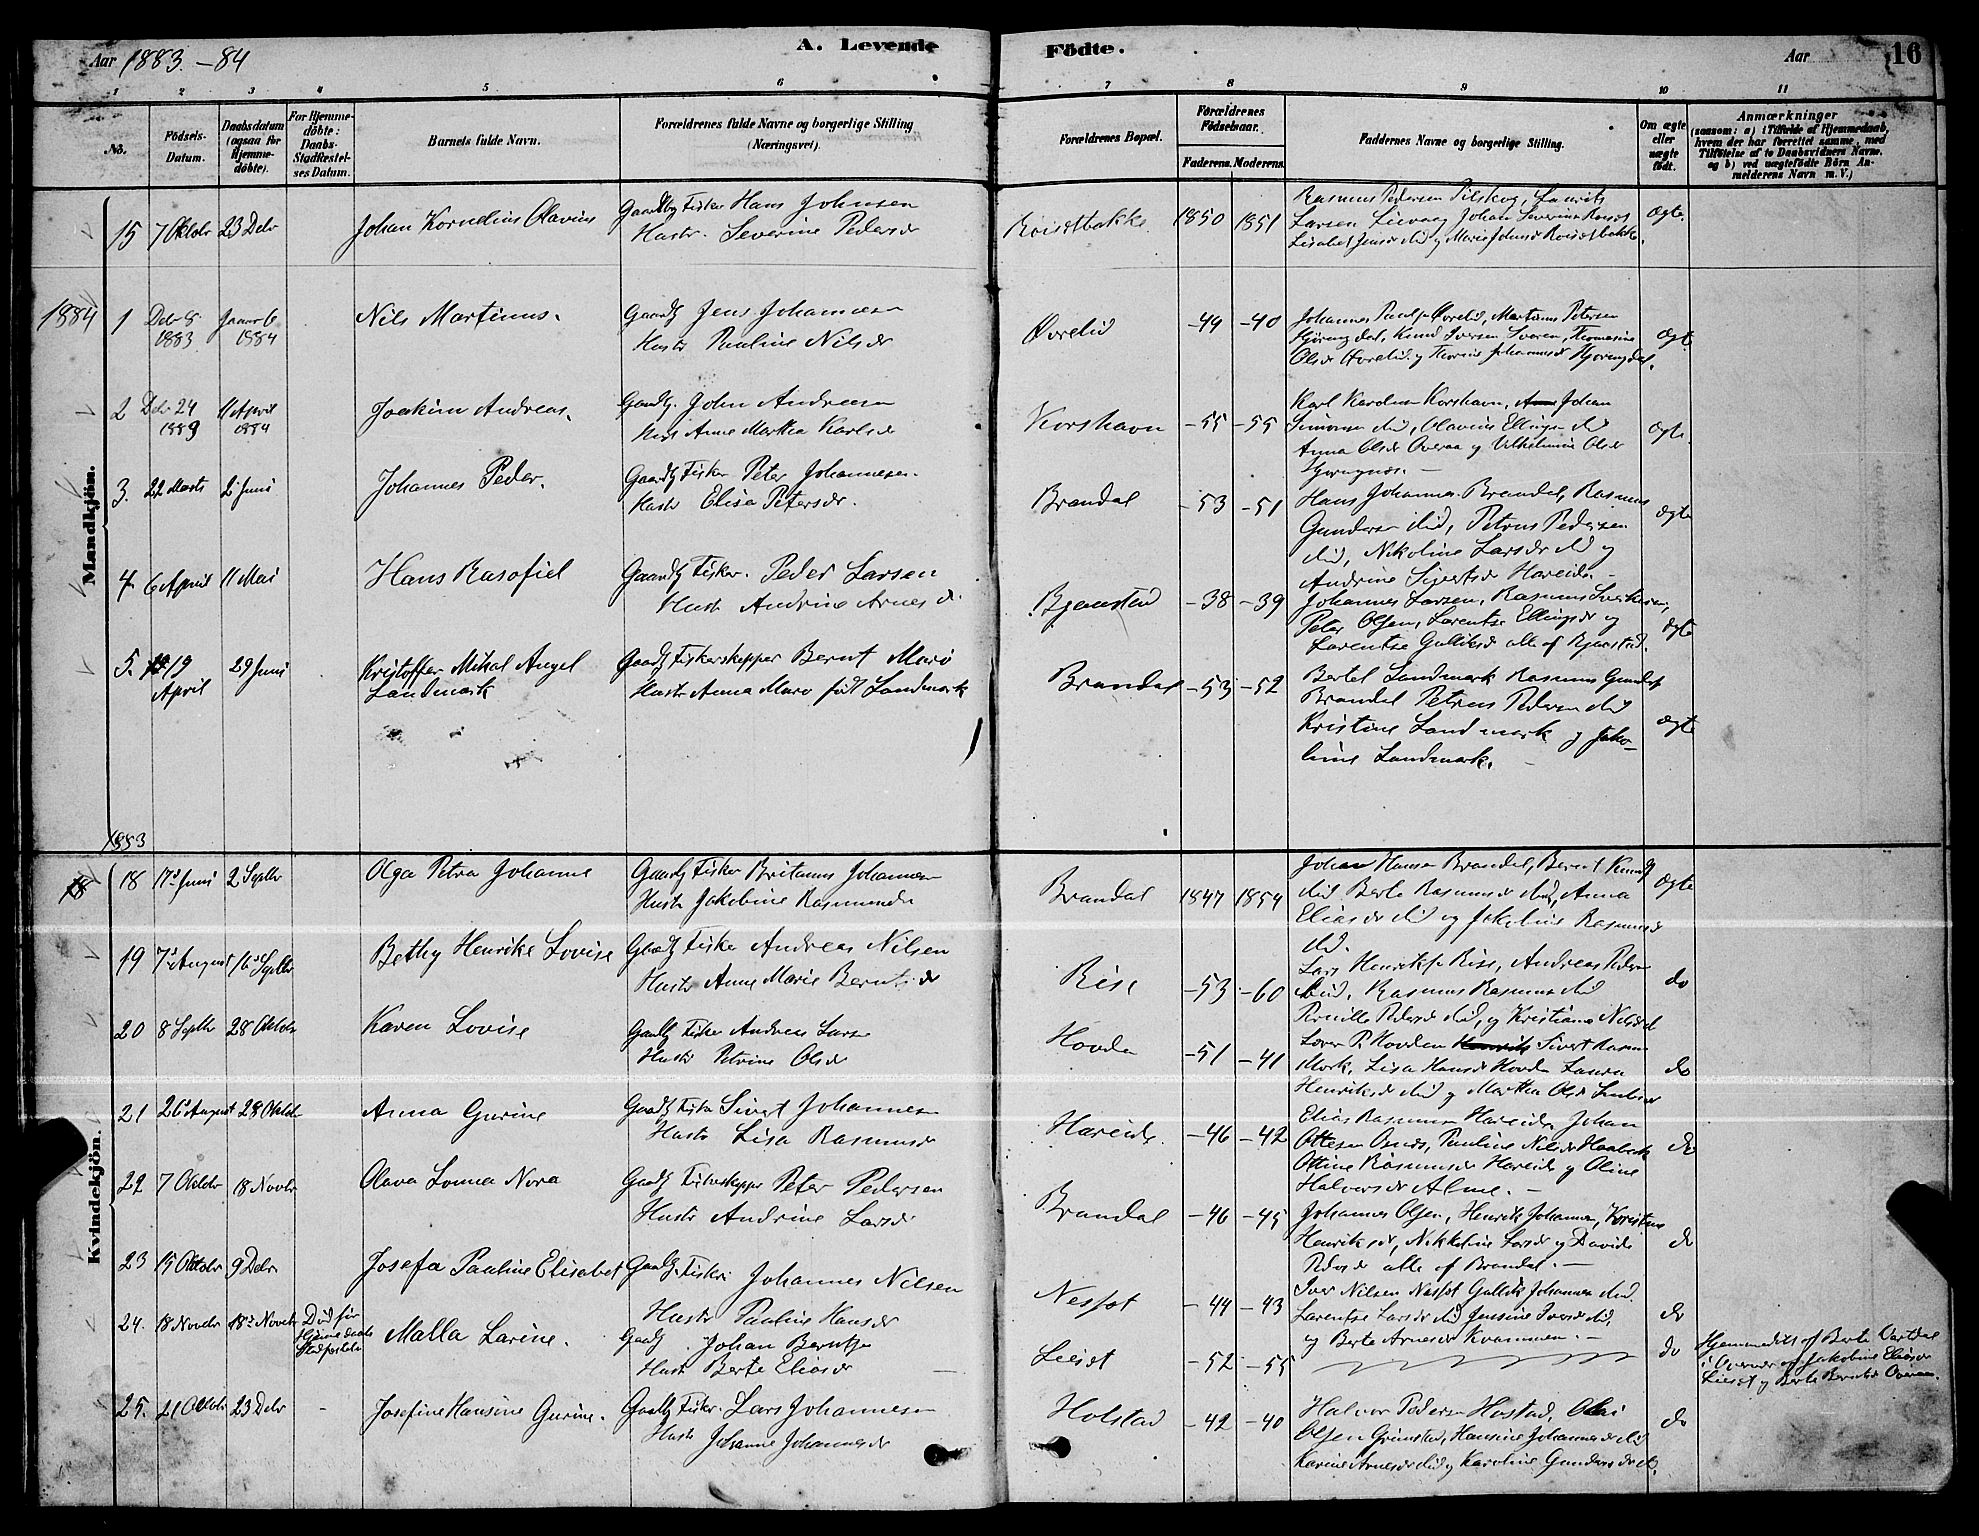 Aar 1883-84
A. Levende Födte.
Aar
16
1 2 3 4 5 6 7 8 9 10 11
No.
Födsels-Datum.
Daabsdatum (ogsaa for Hjemmedöbte).
For Hjemmedöbte: Daabs-Stadfæstelses Datum.
Barnets fulde Navn.
Forældrenes fulde Navne og borgerlige Stilling (Næringsvei).
Forældrenes Bopæl.
Forældrenes Födselsaar.
Faderens. Moderens.
Faddernes Navne og borgerlige Stilling.
Om ægte eller uægte födt.
Anmærkninger
(saasom: a) i Tilfælde af Hjemmedaab, hvem der har forrettet samme, med Tilföielse af to Daabsvidners Navne, og b) ved uægtefödte Börn Anmelderens Navn m. V.)
Mandkjön.
15 7 Oktbr 23 Debr Johan Kornelius Olavius Gaardbr Fisker Hans Johnsen
Hustr. Severine Pedersdr
1850 1851 Rasmus Pedersen Pilskog, Laurits
Larsen Liavaag Johan Severinsen
Ægte
1884
1 Debr 8 1883 Januar 6 1884 Nils Martinus. Gaardbr Jens Johannesen
Hustr Pauline Nilsdr
Overlid -49 -40 Johannes Overlid, Martinus Petersen
Hjørungdal, Knud Iversen Thomasine
Olsdr Overlid og Johannesdr Hjørungdal.
Ægte
2 Debr 24 1883 11 April 1884 Joakim Andreas. Gaardbr. John Andreasen
Hustr Anne Martha Karlsdr
Korshavn -55 -55 Karl Korshavn, Johan
Simonsen ibid, Olavius Ellingsen ibid
Anna Olsdr Overaa og Vilhelmine Olsdr
Hjørungnæs. -
Ægte
3. 22 Marts 2 Juni Johannes Peder. Gaardbr Fisker Peter Johannesen.
Hustr Elisa Petersdr.
Brandal -53 -51 Hans Johannesen Brandal, Rasmus
Gundersen ibid, Petrus Pedersen
ibid, Nikoline Larsdr ibid og
Andrine Sivertsdr Hareide. -
Ægte
4. 6 April 11 Mai Hans Rasofiel Gaardbr Fisker. Peder Larsen
Hustr Andrine Arnesdr.
Bjenstad -38 -39 Johannes Larsen, Rasmus
Peter Olsen, Larentse Ellingsdr og
Larentse Gulliksdr alle af Bjenstad.
Ægte
5. 19 April 29 Juni Kristoffer Mikal Angel
Landmark
Gaardbr Fiskerskipper Bernt Marø
Hustr Anna Marø født Landmark
Brandal -53 -52 Bertel Landmark Rasmus Gunders
Brandal Petrus Pedersen ibid
Kristine Landmark og Jako-
bine Landmark.
Ægte
1883
Kvindekjön.
18 17de Juni 2 Septbr Olga Petra Johanne Gaardbr Fisker Britanus Johannesen
Hustr Jakobine Rasmusdr
Brandal 1847 1854 Johan Hansen Brandal, Bernt
ibid Berte Rasmusdr ibid, Anna
Eliasdr ibid og Jakobine Rasmusdr
ibid.
Ægte
19 7de August 16de Septbr Bethy Henrike Lovise Gaardbr Fisker Andreas Nilsen
Hustr Anne Marie Berntsdr
Rise -53 -60 Lars Henriks Rise, Andreas Pedersen
ibid, Rasmus Rasmussen ibid
Pernille Pedersdr ibid, og Kristiane Nilsdr
do
20 8 Septbr 28 Oktobr Karen Lovise Gaardbr Fisker Andreas Larsen
Hustr Petrine Olsdr
Hovden -51 -41 P. Hovden Sivert Rasmus
Mork, Lisa Hansdr Hovden Laura
Henriksdr ibid og Martha Olsdr
do
21 26 August 28 Oktobr Anna Gurine Gaardbr Fisker Sivert Johannesen
Hustr Lisa Rasmusdr
Hareide -46 -42 Elias Rasmussen Hareide, Johan
Ottesen Pauline Nilsdr
Ottine Rasmusdr Hareide og Oline
Halvorsdr Alme. -
do
22 7 Oktobr 18 Novbr Olava Lovnea Nora Gaardbr Fiskeskipper Peter Pedersen
Hustr Andrine Larsdr
Brandal -46 -45 Johannes Olsen, Henrik Johannesen, Kristine
Henriksdr, Nikkoline Larsdr og Davida
Pedersdr alle af Brandal. -
do
23 15 Oktobr 9 Debr Josefa Pauline Elisabet Gaardbr. Fisker. Johannes Nilsen
Hustr Pauline Hansdr
Nesset -44 -43 Iver Nilsen Nesset Gullik Johannesen ibid.
Larentse Larsdr ibid Jensine Iversdr ibid,
og Berte Arnesdr Kvammen. -
do
24. 18 Novbr 18de Novbr Död før Hjemmedaabs Stadfæstelse Malla Larine. Gaardbr. Johan Berntsen
Hustr Berte Eliasdr
Liaset -52 -55 do Hjemmedöbt af Berte Vartdal
i Overværelse af Jakobine Eliasdr
Liaset og Berte Berntsdr Overaa.
25. 21 Oktobr 23 Debr - Josefine Hansine Gurine. Gaardbr Fisker. Lars Johannesen
Hustr Johanne Johannesdr
Holstad -42 -40 Halvor Pedersen Hostad, Olai
Olsen Grimstad, Hansine Johannesdr ibid
Karine Arnesdr ibid og Karoline Gundersdr ib.
do